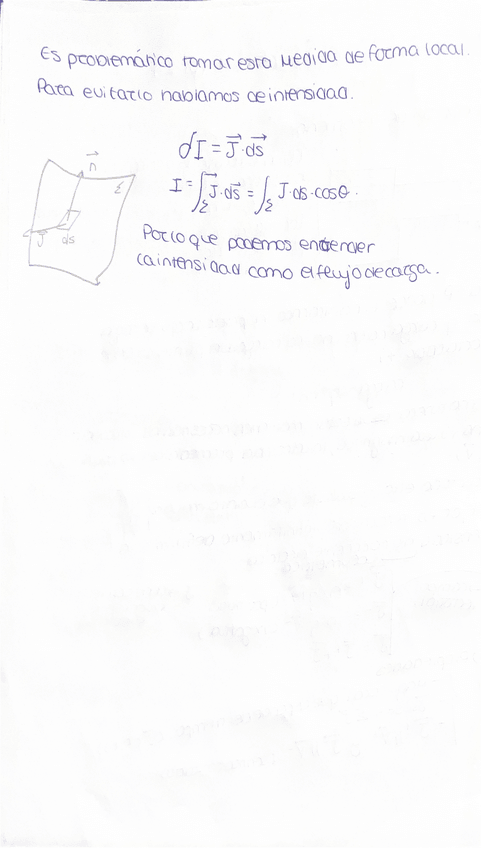 Es problemático tomar esta medida de forma local.
Para evitarlo hablamos de intensidad.
dI = J⃗·ds⃗
I = ∫_Σ J⃗·ds⃗ = ∫_Σ J·ds·cosθ.
n⃗
Σ
J⃗
ds
Por lo que podemos entender
la intensidad como el flujo de carga.